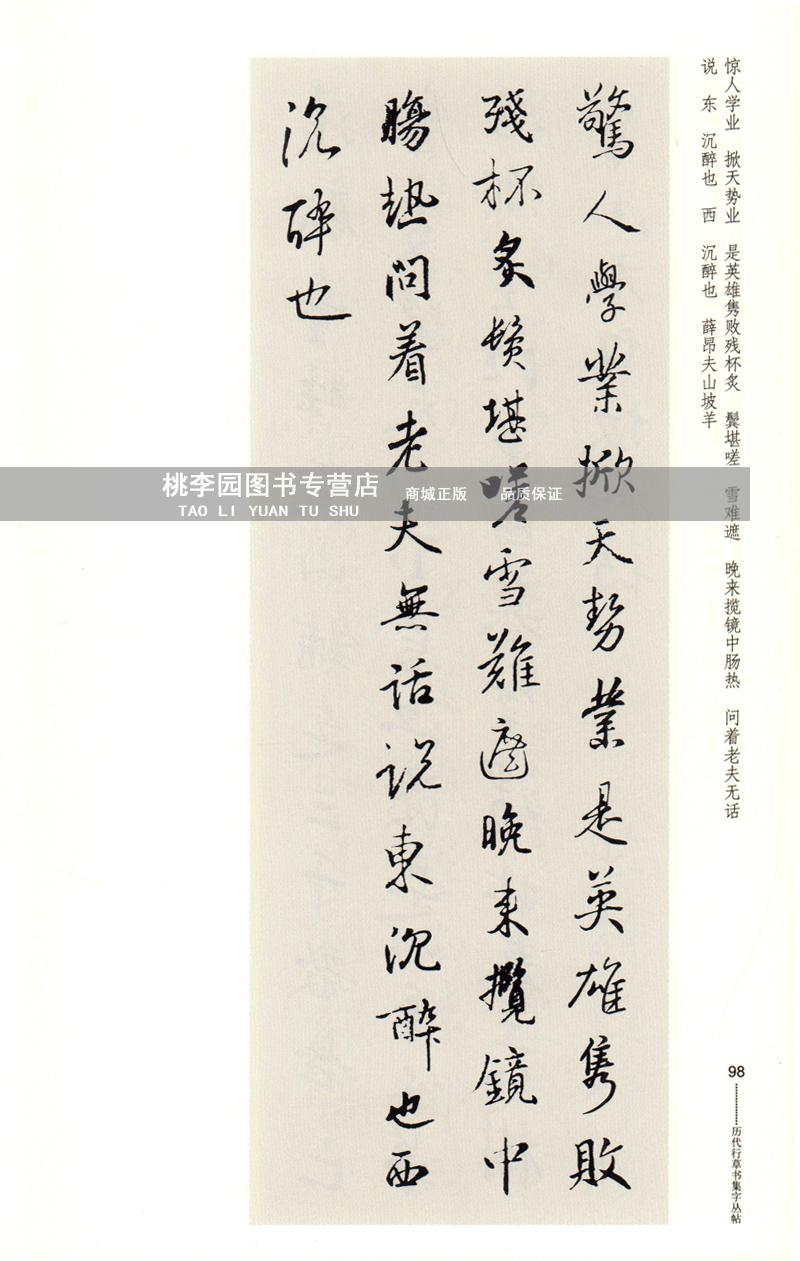 惊人学业 掀天势业 是英雄隽败残杯炙 鬓堪嗟 雪难遮 晚来揽镜中肠热 问着老夫无话
说 东 沉醉也 西 沉醉也 薛昂夫山坡羊
驚人學業掀天勢業是英雄隽敗
殘杯炙鬢堪嗟雪難遮晚来攬鏡中
腸热問着老夫無話説東沉醉也西
沉醉也
桃李园图书专营店 商城正版 品质保证
TAO LI YUAN TU SHU
98
历代行草书集字丛帖